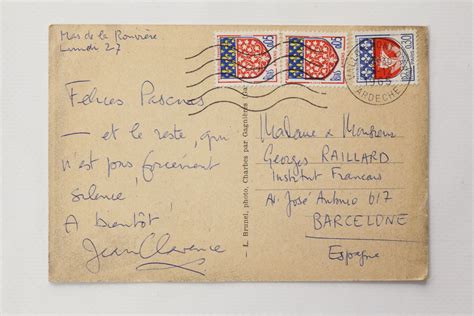 Mas de la Rouvière
Lundi 27
Felices Pascuas
— et le reste, qui
n'est pas forcément
silence,
A bientôt
Jean Clarence
— L. Brunel, photo, Charbes par Gagnières
Madame & Monsieur
Georges RAILLARD
Institut Francais
Av. José António 617
BARCELONE
Espagne
0,05
0,05
0,30
ARDECHE